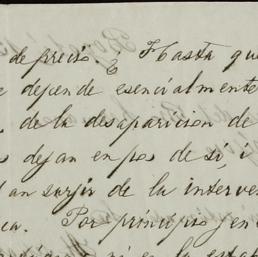 de precio. ¿ Hasta que
depende esencialmente
de la desaparicion de
dejan en pos de sí i
an surjir de la interve
ca. Por principio jen